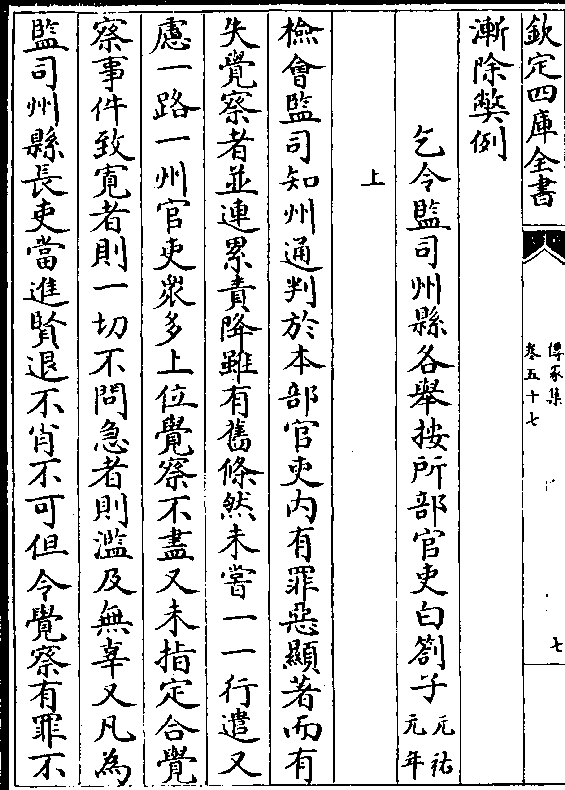 欽定四庫全書
傳家集
卷五十七
七
漸除獘例
乞令監司州縣各舉按所部官吏白劄子元祐元年
上
檢會監司知州通判於本部官吏内有罪惡顯著而有
失覺察者並連累責降雖有舊條然未嘗一一行遣又
慮一路一州官吏衆多上位覺察不盡又未指定合覺
察事件致寛者則一切不問急者則濫及無辜又凡為
監司州縣長吏當進賢退不肖不可但令覺察有罪不